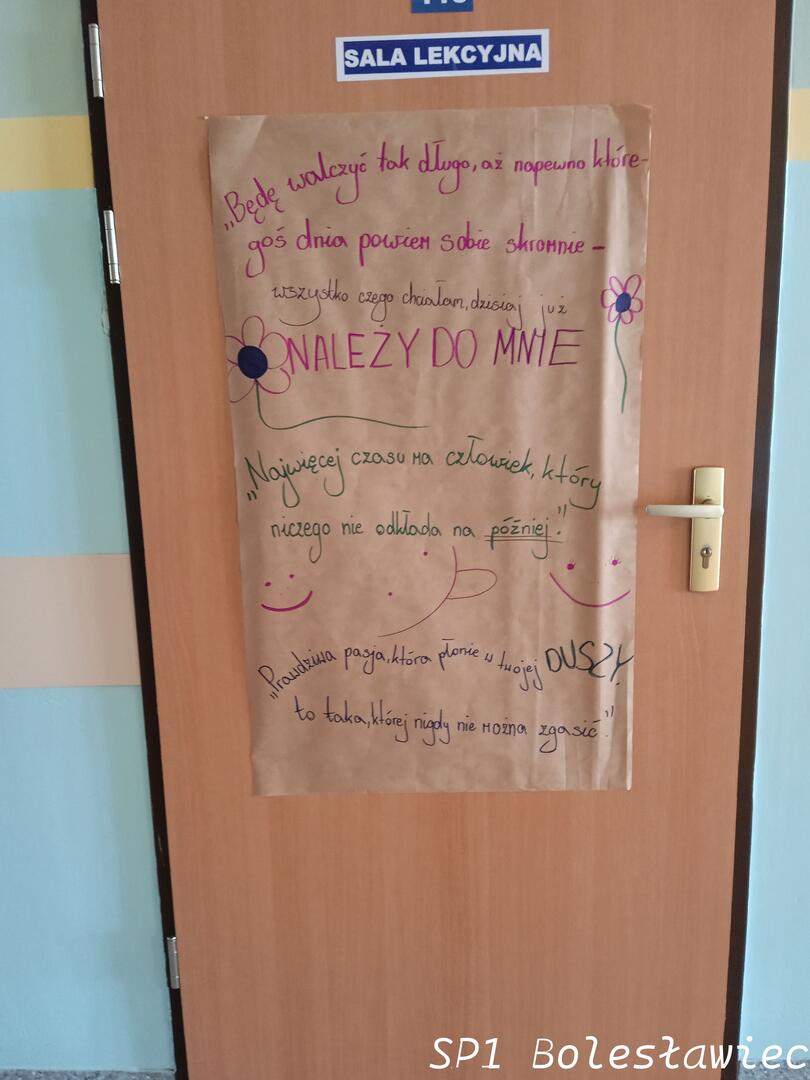 SALA LEKCYJNA
„Będę walczyć tak długo, aż napewno które-
goś dnia powiem sobie skromnie –
wszystko czego chciałam, dzisiaj już
NALEŻY DO MNIE
„Najwięcej czasu ma człowiek, który
niczego nie odkłada na później."
„Prawdziwa pasja, która płonie w twojej DUSZY,
to taka, której nigdy nie można zgasić."
SP1 Bolesławiec